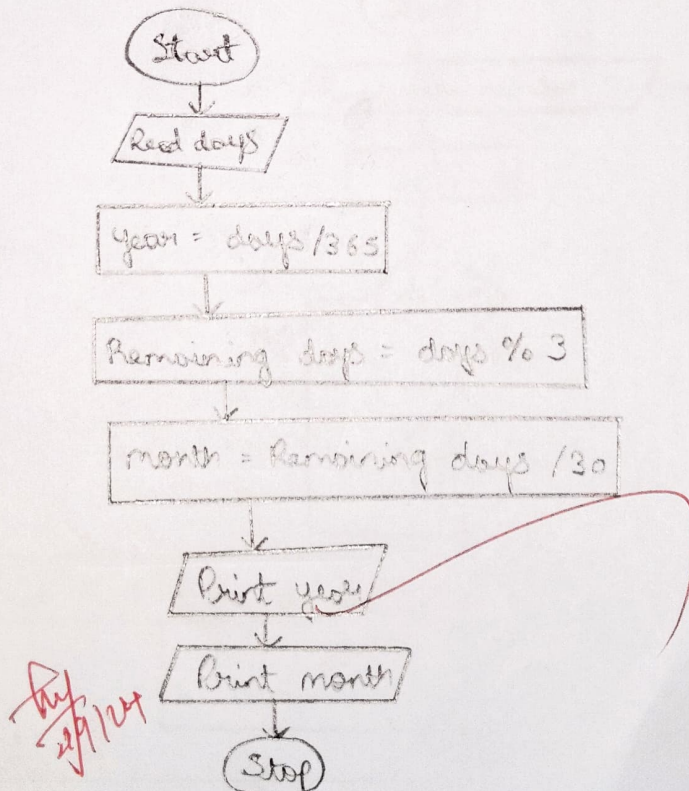 Start
Read days
year = days/365
Remaining days = days % 3
month = Remaining days /30
Print year
Print month
Stop